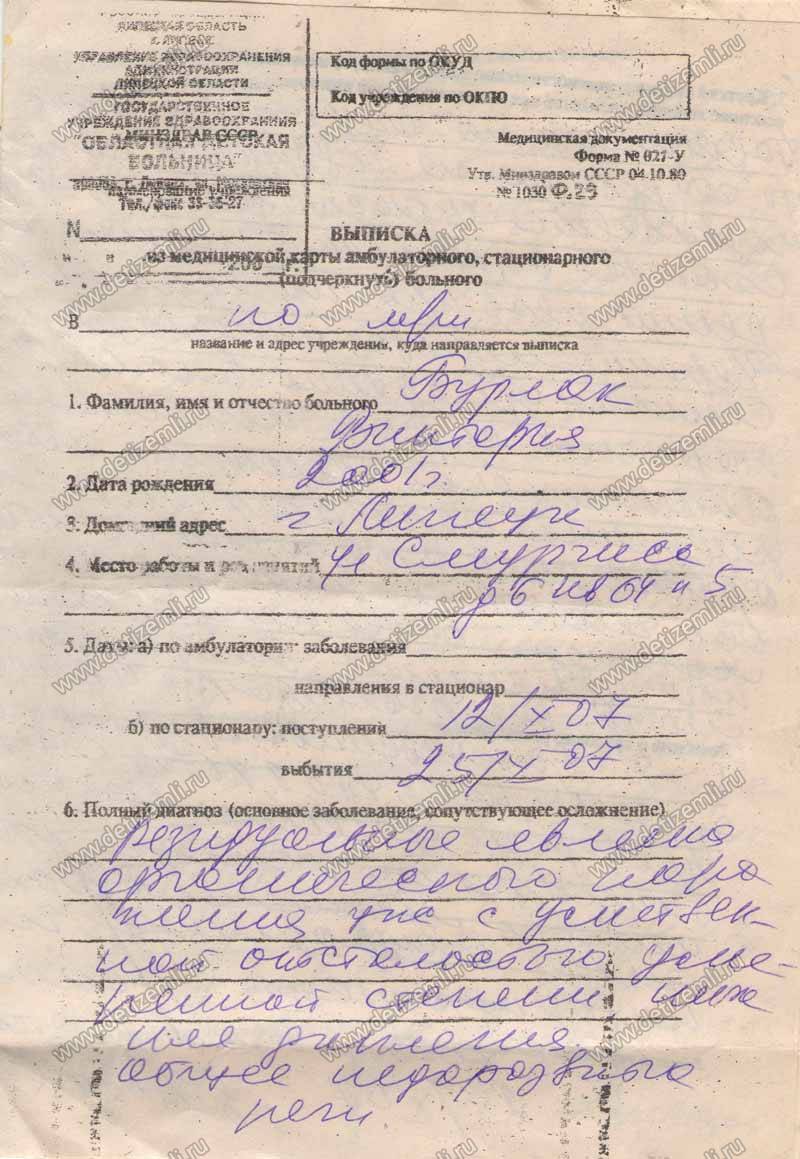 ЛИПЕЦКАЯ ОБЛАСТЬ
УПРАВЛЕНИЕ ЗДРАВООХРАНЕНИЯ
АДМИНИСТРАЦИИ
ЛИПЕЦКОЙ ОБЛАСТИ
ГОСУДАРСТВЕННОЕ
УЧРЕЖДЕНИЕ ЗДРАВООХРАНЕНИЯ
МИНЗДРАВ СССР
"ОБЛАСТНАЯ ДЕТСКАЯ
БОЛЬНИЦА"
наименование учреждения
Тел./факс
Код формы по ОКУД
Код учреждения по ОКПО
Медицинская документация
Форма № 027-У
Утв. Минздравом СССР 04.10.80
№ 1030 Ф.23
N
200 г.
ВЫПИСКА
из медицинской карты амбулаторного, стационарного
(подчеркнуть) больного
В по
название и адрес учреждения, куда направляется выписка
1. Фамилия, имя и отчество больного Бурлак
Виктория
2. Дата рождения 2001г.
3. Домашний адрес г Липецк
4. Место работы и род занятий ул Смургиса
д 6 кв 64 п 5
5. Даты: а) по амбулатории: заболевания
направления в стационар
б) по стационару: поступлений 12/X 07
выбытия 25/X 07
6. Полный диагноз (основное заболевание, сопутствующее осложнение)
Резидуальные явления
органического пора
жения цнс с умствен-
ной отсталостью уме-
ренной степени
Общее недоразвитие
речи
www.detizemli.ru